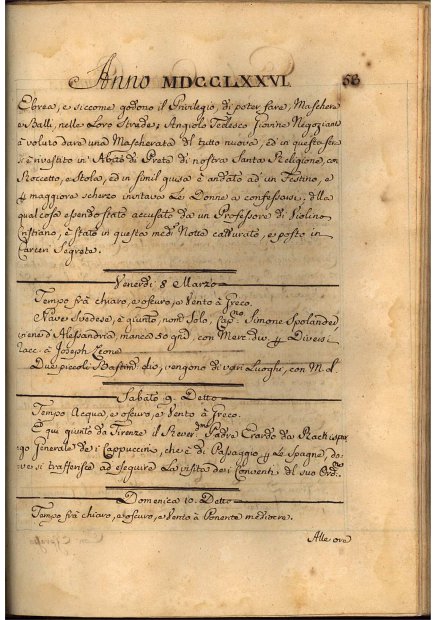 Anno MDCCLXXVI. 58
Ebrea, e siccome godono il Privilegio, di poter fare, Maschere
e Balli, nelle Loro Strade; Angiolo Tedesco Giovine Negoziante
à voluto dare una Mascherata del tutto nuova, ed in questa sera
si è rivestito in Abito di Prete di nostra Santa Religione, con
Roccetto, e Stola, ed in simil guisa è andato ad un Festino, e
maggiore scherzo invitava Le Donne a confessarsi, della
qual cosa essendo stato accusato da un Professore di Violino
Cristiano, è stato in questa med. Notte catturato, e posto in
Carceri Segrete.
Venerdi 8 Marzo
Tempo frà chiaro, e oscuro, e Vento à Greco.
Nave Svedese, è giunto, nom. Solo, Cap.no Simone Spolander
viene d'Alessandria, manca 50 gni, con Merc. div. Diversi
Racc. à Joseph Leone
Due piccoli Bastim. div. vengono di varj Luoghi, con M. d.
Sabato 9. Detto
Tempo Acqua, e oscuro, e Vento à Greco.
È quì giunto da Firenze il Rever.mo Padre Erardo da
Generale de i Cappuccini, che è di Passaggio Le Spagne, do-
ve si trasferisce ad eseguire La visita de i Conventi del suo Ord.
Domenica 10. Detto
Tempo frà chiaro, e oscuro, e Vento à Ponente mediocre.
Alle ore